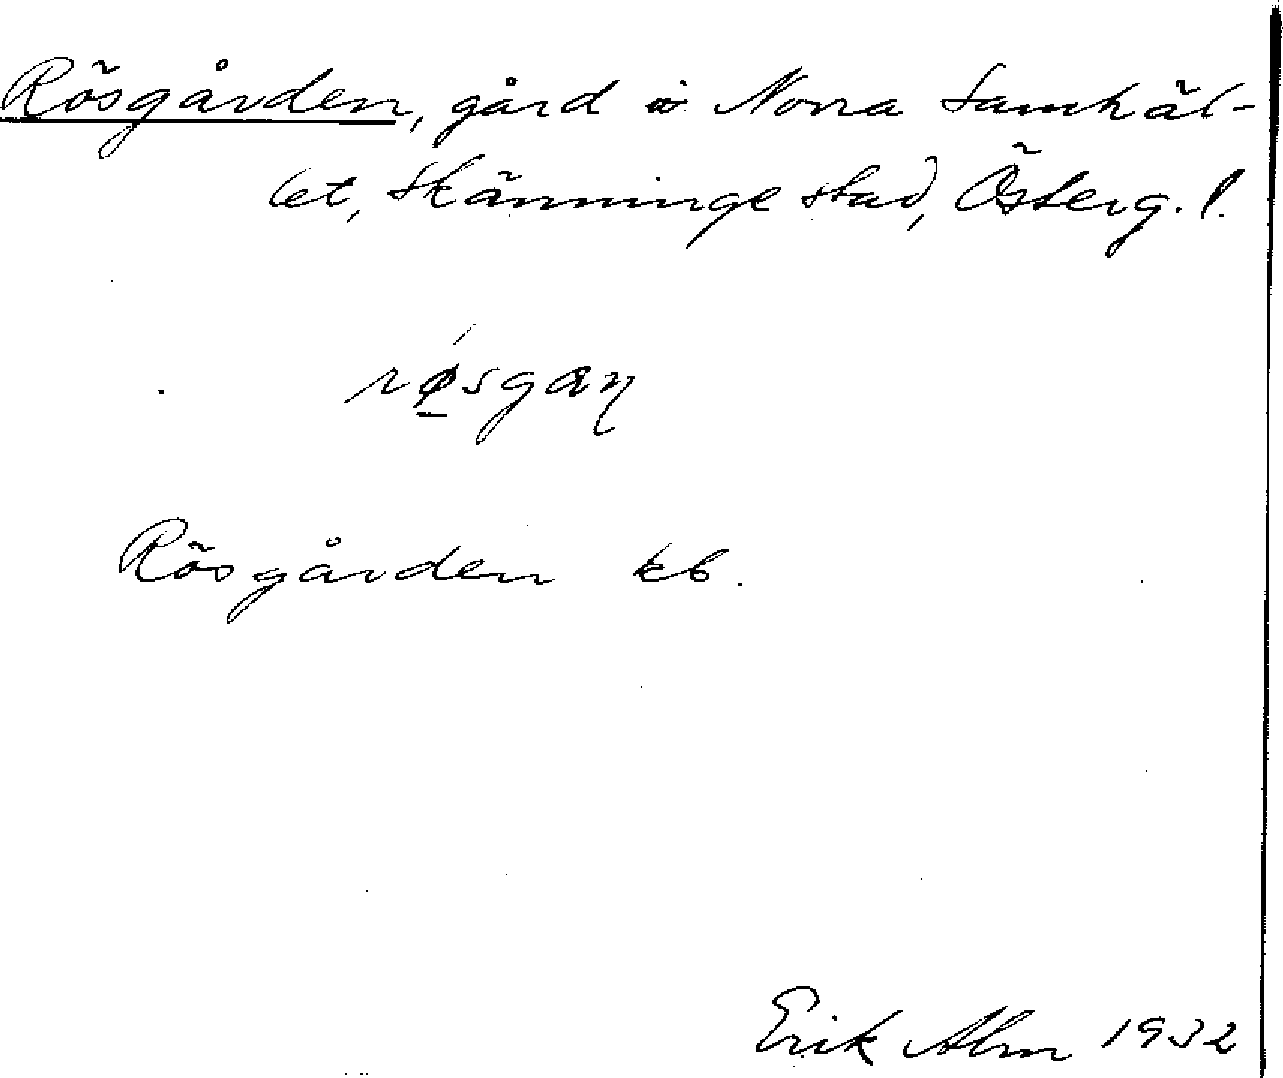 Rösgården, gård i Norra Samhäl-
let, Skänninge stad, Österg. l.
rǿ̱sgaɳ
Rösgården kb.
Erik Alm 1932